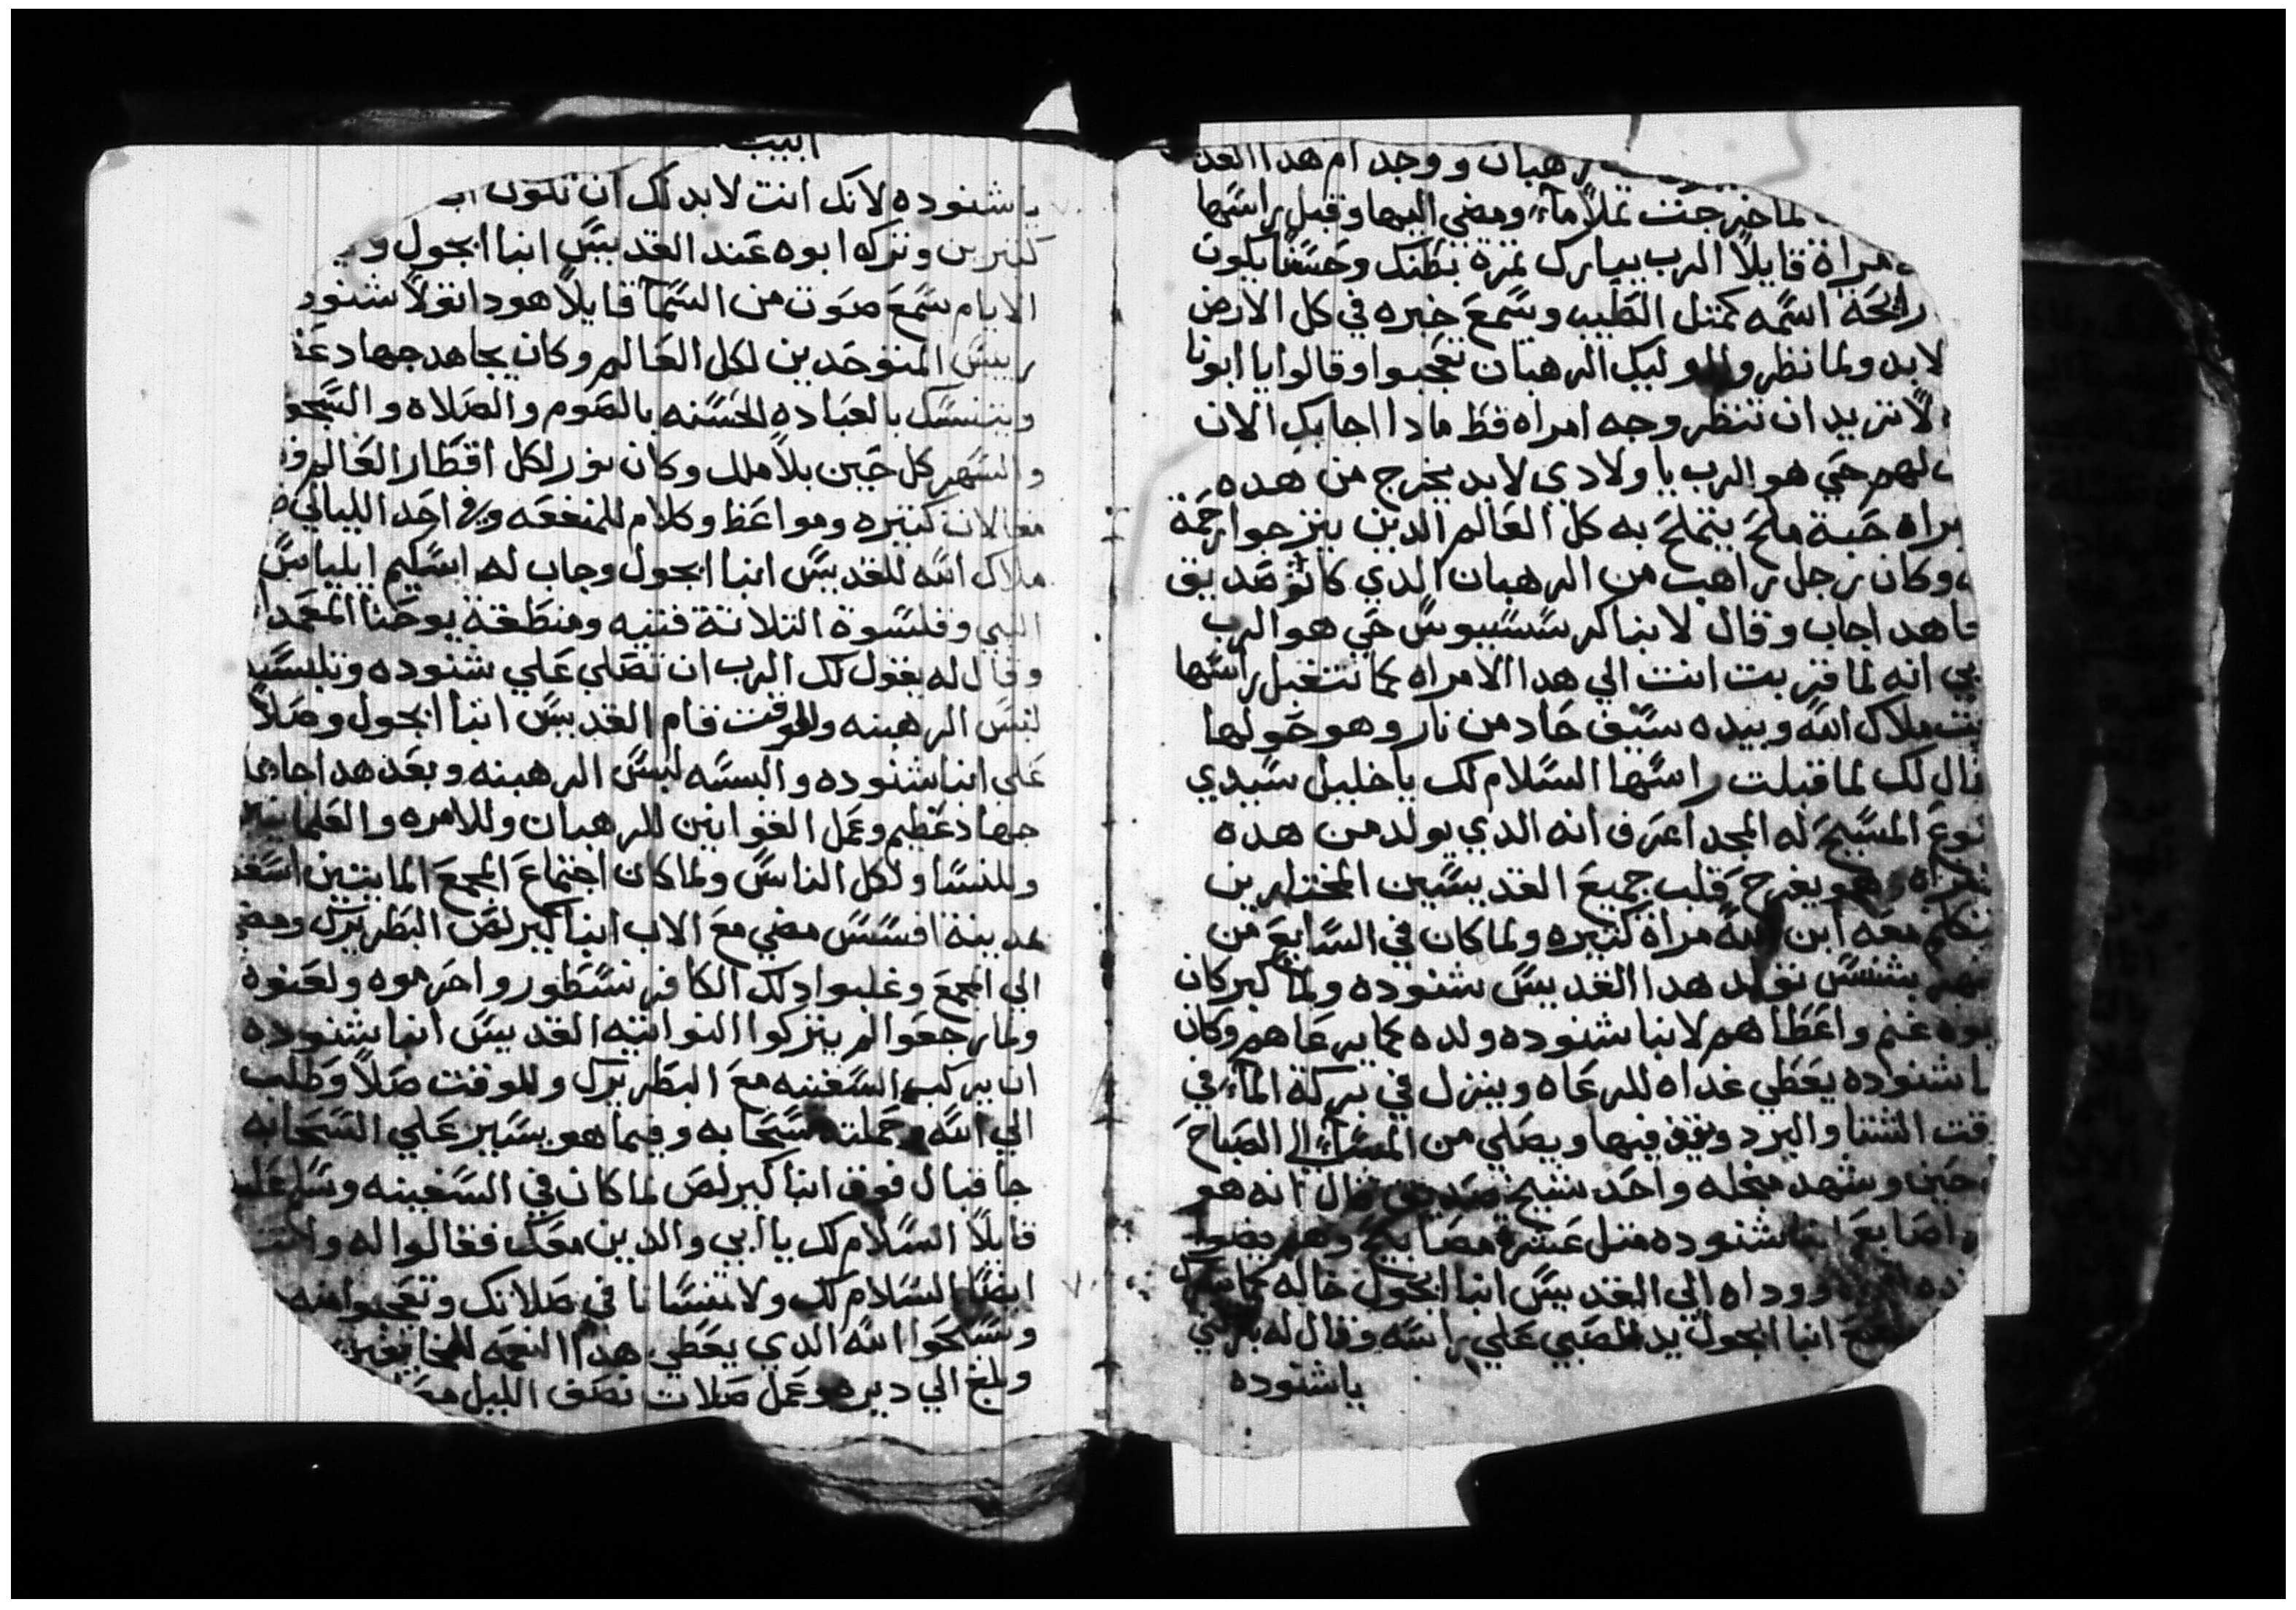 رهبان ووجد ام هدا القد
لما خرجت تملا مآء ومضي اليها وقبل راسها
مراة قايلا الرب يبارك تمرة بطنك وحسنا يكون
رايحة اسمه كمتل الطيب وسمع خبره في كل الارض
لابد ولما نظروا اوليك الرهبان تعجبوا وقالوا يا ابونا
لا تريد ان تنظر وجه امراه قط مادا اجابك الان
لهم حي هو الرب يا ولادي لابد يخرج من هده
مراه حبة ملح يتملح به كل العالم الدين يترجوا رحمة
وكان رجل راهب من الرهبان الدي كانو صديق
فاهد اجاب وقال لانبا كرسسيوس حي هو الرب
انه لما قربت انت الي هدا الامراه كما تتقبل راسها
ملاك الله وبيده سيف حاد من نار وهو حولها
قال لك لما قبلت راسها السلام لك يا خليل سيدي
المسيح له المجد اعرف انه الدي يولد من هده
وهو يفرح قلب جميع القديسين المختارين
معه ابن مراة كتيره ولما كان في السابع من
بشنس تولد هدا القديس شنوده ولما كبر كان
غنم واعطاهم لانبا شنوده ولده كما يرعاهم وكان
شنوده يعطي غداه للرعاه وينزل في بركة المآء في
الشتا والبرد ويقف فيها ويصلي من المسآء الي الصباح
حين وشهد من اجله واحد شيخ صديق قال انه هو
اصابع انبا شنوده متل عشرة مصابيح وهم يضوا
ووداه الي القديس انبا ابجول خاله كما
انبا ابجول يد الصبي علي راسه وقال له باركني
يا شنوده
ابيب
يا شنوده لانك انت لابد لك ان تكون اب
كتيرين وتركه ابوه عند القديس انبا ابجول و
الايام سمع صوت من السمآ قايلا هودا تولا شنود
رييس المتوحدين لكل العالم وكان يجاهد جهاد
ويتنسك بالعباده الحسنه بالصوم والصلاة والسجو
والسهر كل حين بلا ملل وكان نور لكل اقطار العالم
مقالات كتيره ومواعظ وكلام للمنفعه وفي احد الليالي
ملاك الله للقديس انبا ابجول وجاب له اسكيم ايلياس
النبي وقلسوة التلاتة فتيه ومنطقة يوحنا المعمدا
وقال له يقول لك الرب ان تصلي علي شنوده وتلبسه
لبس الرهبنه وللوقت قام القديس انبا ابجول وصلا
علي انبا شنوده والبسه لبس الرهبنه وبعد هدا جاهد
جهاد عظيم وعمل القوانين للرهبان وللامره والعلمانيين
وللنسا ولكل الناس ولما كان اجتماع المجمع المايتين اسقف
مدينة افسس مضي مع الاب انبا كيرلص البطريرك ومضي
الي المجمع وغلبوا دلك الكافر نسطور واحرموه ولعنوه
ولما رجعوا لم يتركوا النواتيه القديس انبا شنوده
ان يركب السفينه مع البطريرك وللوقت صلا وطلب
الي الله وحملته سحابه وفيما هو يسير علي السحابه
جا قبال فوق انبا كيرلص لما كان في السفينه وسلم عليه
قايلا السلام لك يا ابي والدين معك فقالوا له وانت
ايضا السلام لك ولا تنسانا في صلاتك وتعجبوا منه
وسبحوا الله الدي يعطي هدا النعمه للخايفين
وبلغ الي ديره وعمل صلات نصف الليل